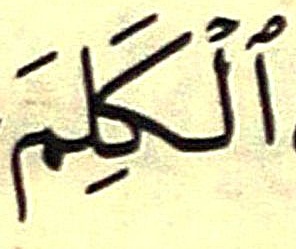 ٱلْكَلِمَ